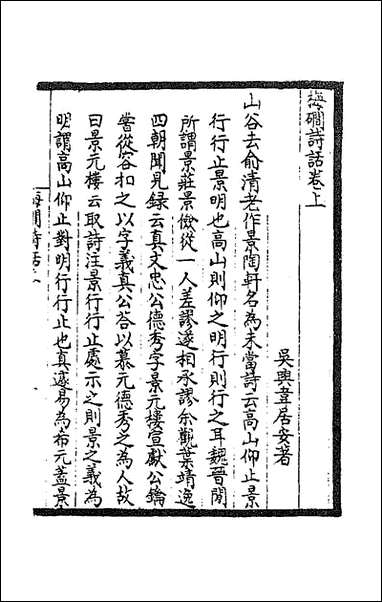 梅磵詩話卷上
吳興韋居安著
山谷去俞清老作景陶軒名為未當詩云高山仰止景
行行止景明也高山則仰之明行則行之耳魏晉間
所謂景莊景儉從一人差謬遂相承謬余觀葉靖逸
四朝聞見録云真文忠公德秀字景元樓宣獻公鑰
嘗從容扣之以字義真公荅以慕元德秀之為人故
曰景元樓云取詩注景行行止處示之則景之義為
明謂高山仰止對明行行止也真遽易為希元蓋景
梅磵詩話上